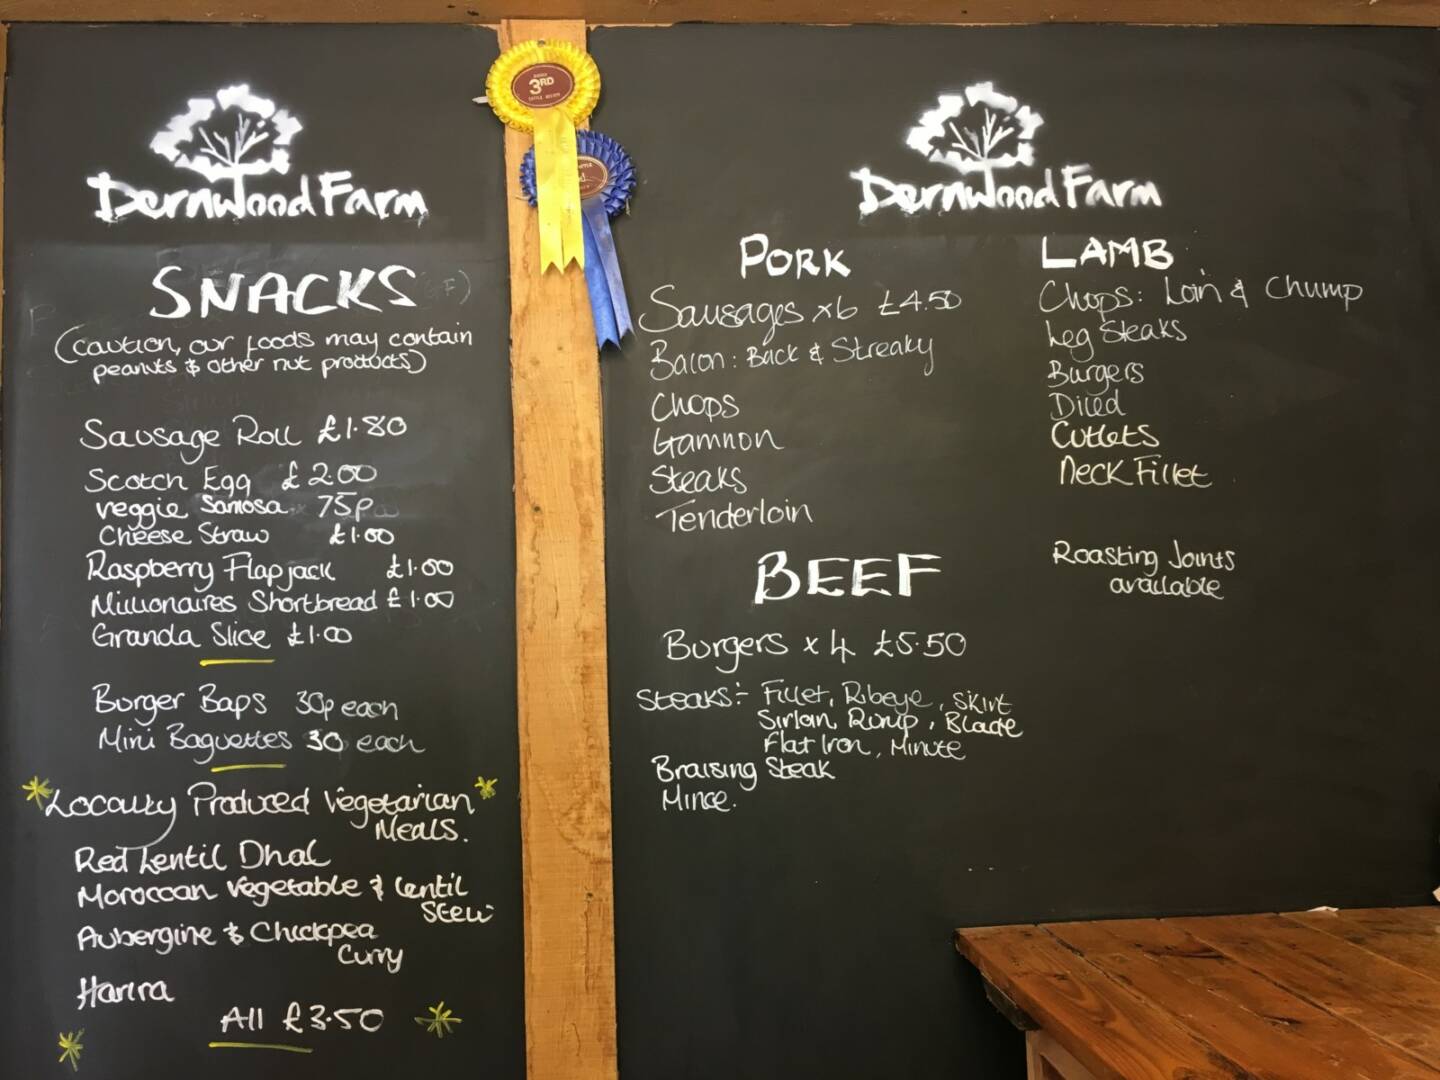 Dernwood Farm
SNACKS
(caution, our foods may contain
peanuts & other nut products)
Sausage Roll £1.80
Scotch Egg £2.00
veggie Samosa 75p
Cheese Straw £1.00
Raspberry Flapjack £1.00
Millionaires Shortbread £1.00
Granda Slice £1.00
Burger Baps 30p each
Mini Baguettes 30 each
*Locally Produced Vegetarian*
Meals.
Red Lentil Dhal
Moroccan Vegetable & Lentil
Stew
Aubergine & Chickpea
Curry
Harira
All £3.50
3RD
Dernwood Farm
PORK
Sausages x6 £4.50
Bacon: Back & Streaky
Chops
Gammon
Steaks
Tenderloin
BEEF
Burgers x 4 £5.50
Steaks:- Fillet, Ribeye, Skirt
Sirloin, Rump, Blade
Flat Iron, Minute
Braising Steak
Mince.
LAMB
Chops: Loin & Chump
Leg Steaks
Burgers
Diced
Cutlets
Neck Fillet
Roasting Joints
available